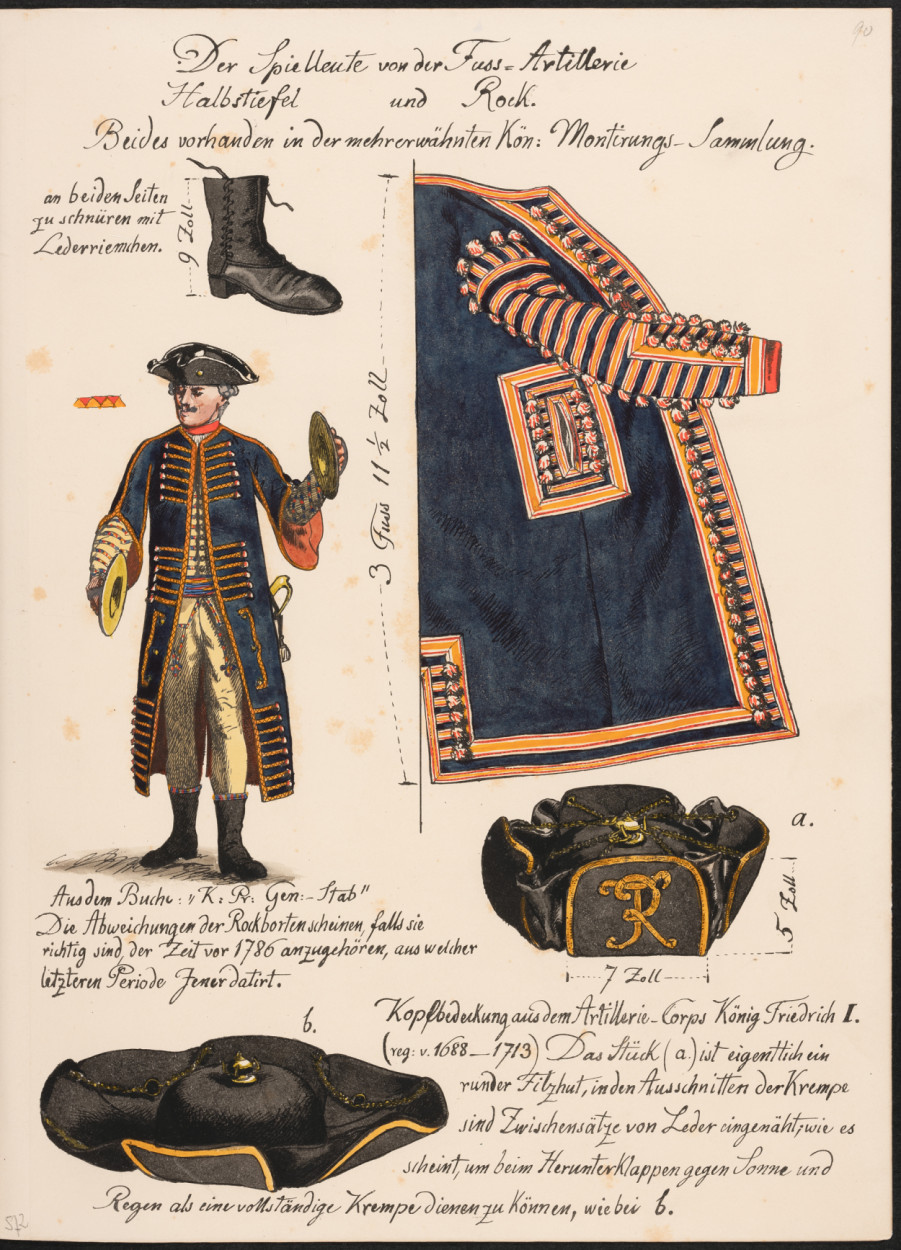 Der Spielleute von der Fuss-Artillerie
Halbstiefel und Rock.
Beides vorhanden in der mehrerwähnten Kön: Montirungs-Sammlung.
an beiden Seiten
zu schnüren mit
Lederriemchen.
9 Zoll
3 Fuss 11 1/2 Zoll
a.
5 Zoll
7 Zoll
Aus dem Buche: "K: Pr: Gen:-Stab"
Die Abweichungen der Rockborten scheinen, falls sie
richtig sind, der Zeit vor 1786 anzugehören, aus welcher
letzteren Periode Jener datirt.
b.
Kopfbedeckung aus dem Artillerie-Corps König Friedrich I.
(reg: v. 1688–1713) Das Stück (a.) ist eigentlich ein
runder Filzhut, in den Ausschnitten der Krempe
sind Zwischensätze von Leder eingenäht, wie es
scheint, um beim Herunterklappen gegen Sonne und
Regen als eine vollständige Krempe dienen zu können, wie bei b.
90
572